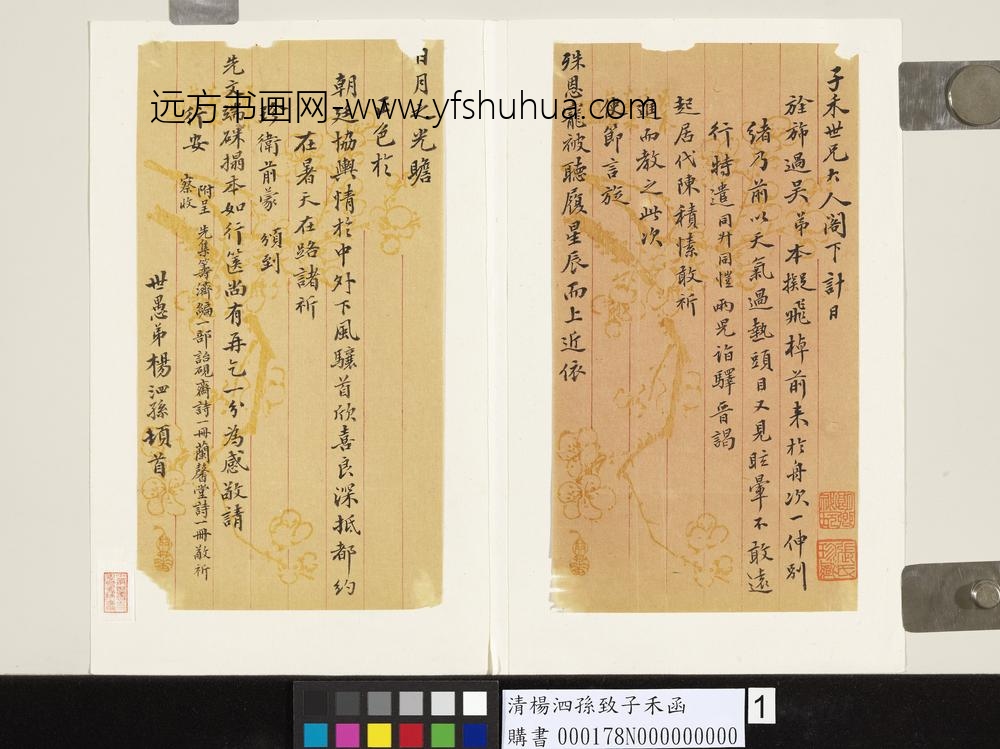 子禾世兄大人閣下計日
旌旆過吳弟本擬飛棹前来於舟次一伸別
緒乃前以天氣過熱頭目又見眩暈不敢遠
行特遣同升同愷兩兒詣驛晉謁
起居代陳積愫敢祈
而教之此次
節言旋
殊恩寵被聽履星辰而上近依
日月之光瞻
色於
朝廷協輿情於中外下風驤首欣喜良深抵都約
在暑天在路諸祈
衛前蒙頒到
先文端碑搨本如行篋尚有再乞一分為感敬請
安
附呈先集籌濟編一部詒硯齋詩一冊蘭馨堂詩一冊敬祈
察收
世愚弟楊泗孫頓首
張氏
远方书画网-www.yfshuhua.com
清楊泗孫致子禾函
購書 000178N000000000
1